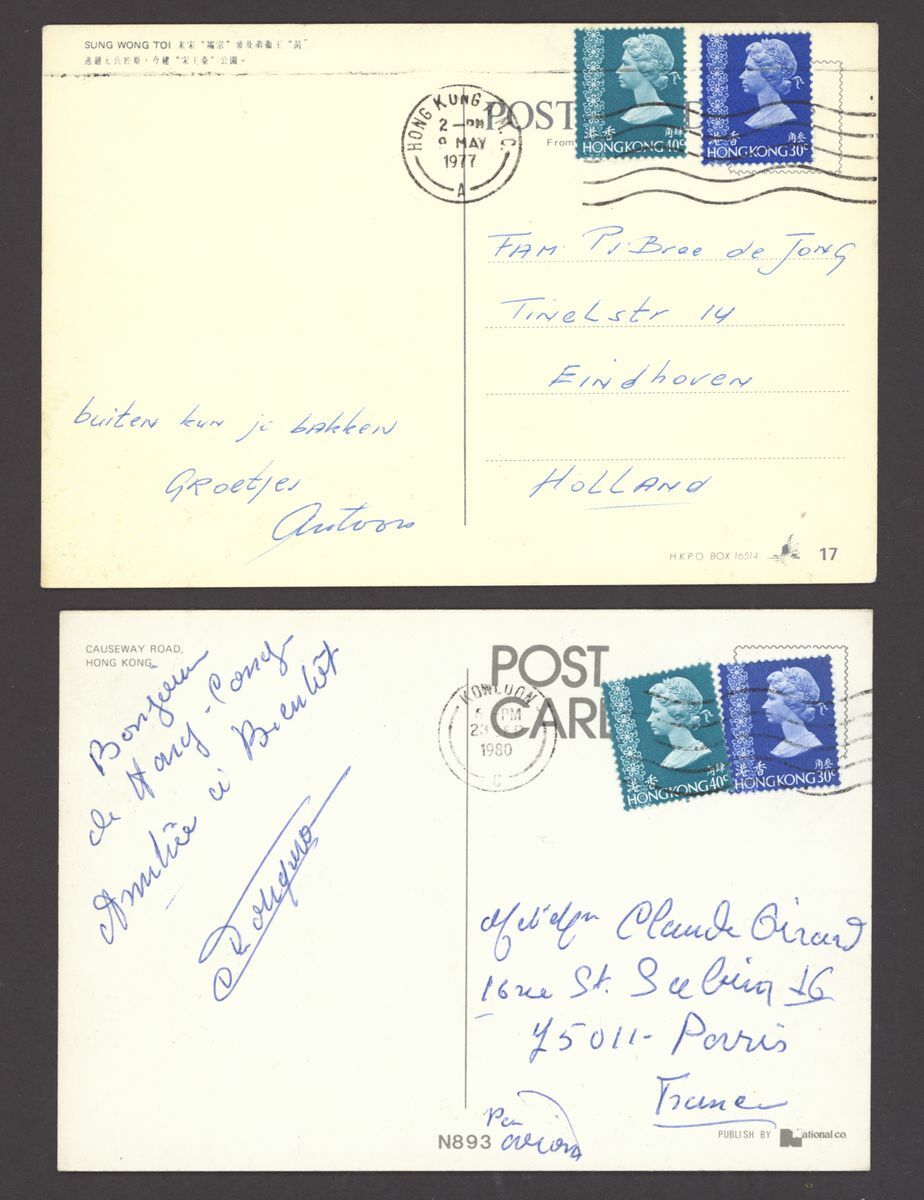 SUNG WONG TOI 末宋“端宗”昺及弟衞王“昺”
逃避元兵於斯，今建“宋王臺”公園。
HONG KONG
2 - PM
MAY
1977
A
POST
From
港香 角肆
HONG KONG 40¢
港香 角叁
HONG KONG 30¢
FAM. P.J. Bree de Jong
Tinelstr 14
Eindhoven
HOLLAND
buiten kun je bakken
Groetjes
Antoon
H.K.P.O. BOX 16514 17
CAUSEWAY ROAD,
HONG KONG.
POST
CARD
KOWLOON
PM
23
1980
C
港香 角肆
HONG KONG 40¢
港香 角叁
HONG KONG 30¢
Bonjour
de Hong-Cong
Amitiée a Bientôt
Claude Girard
16 rue St. Sebin 16
75011- Parris
France
Par
avion
N893
PUBLISH BY National co.